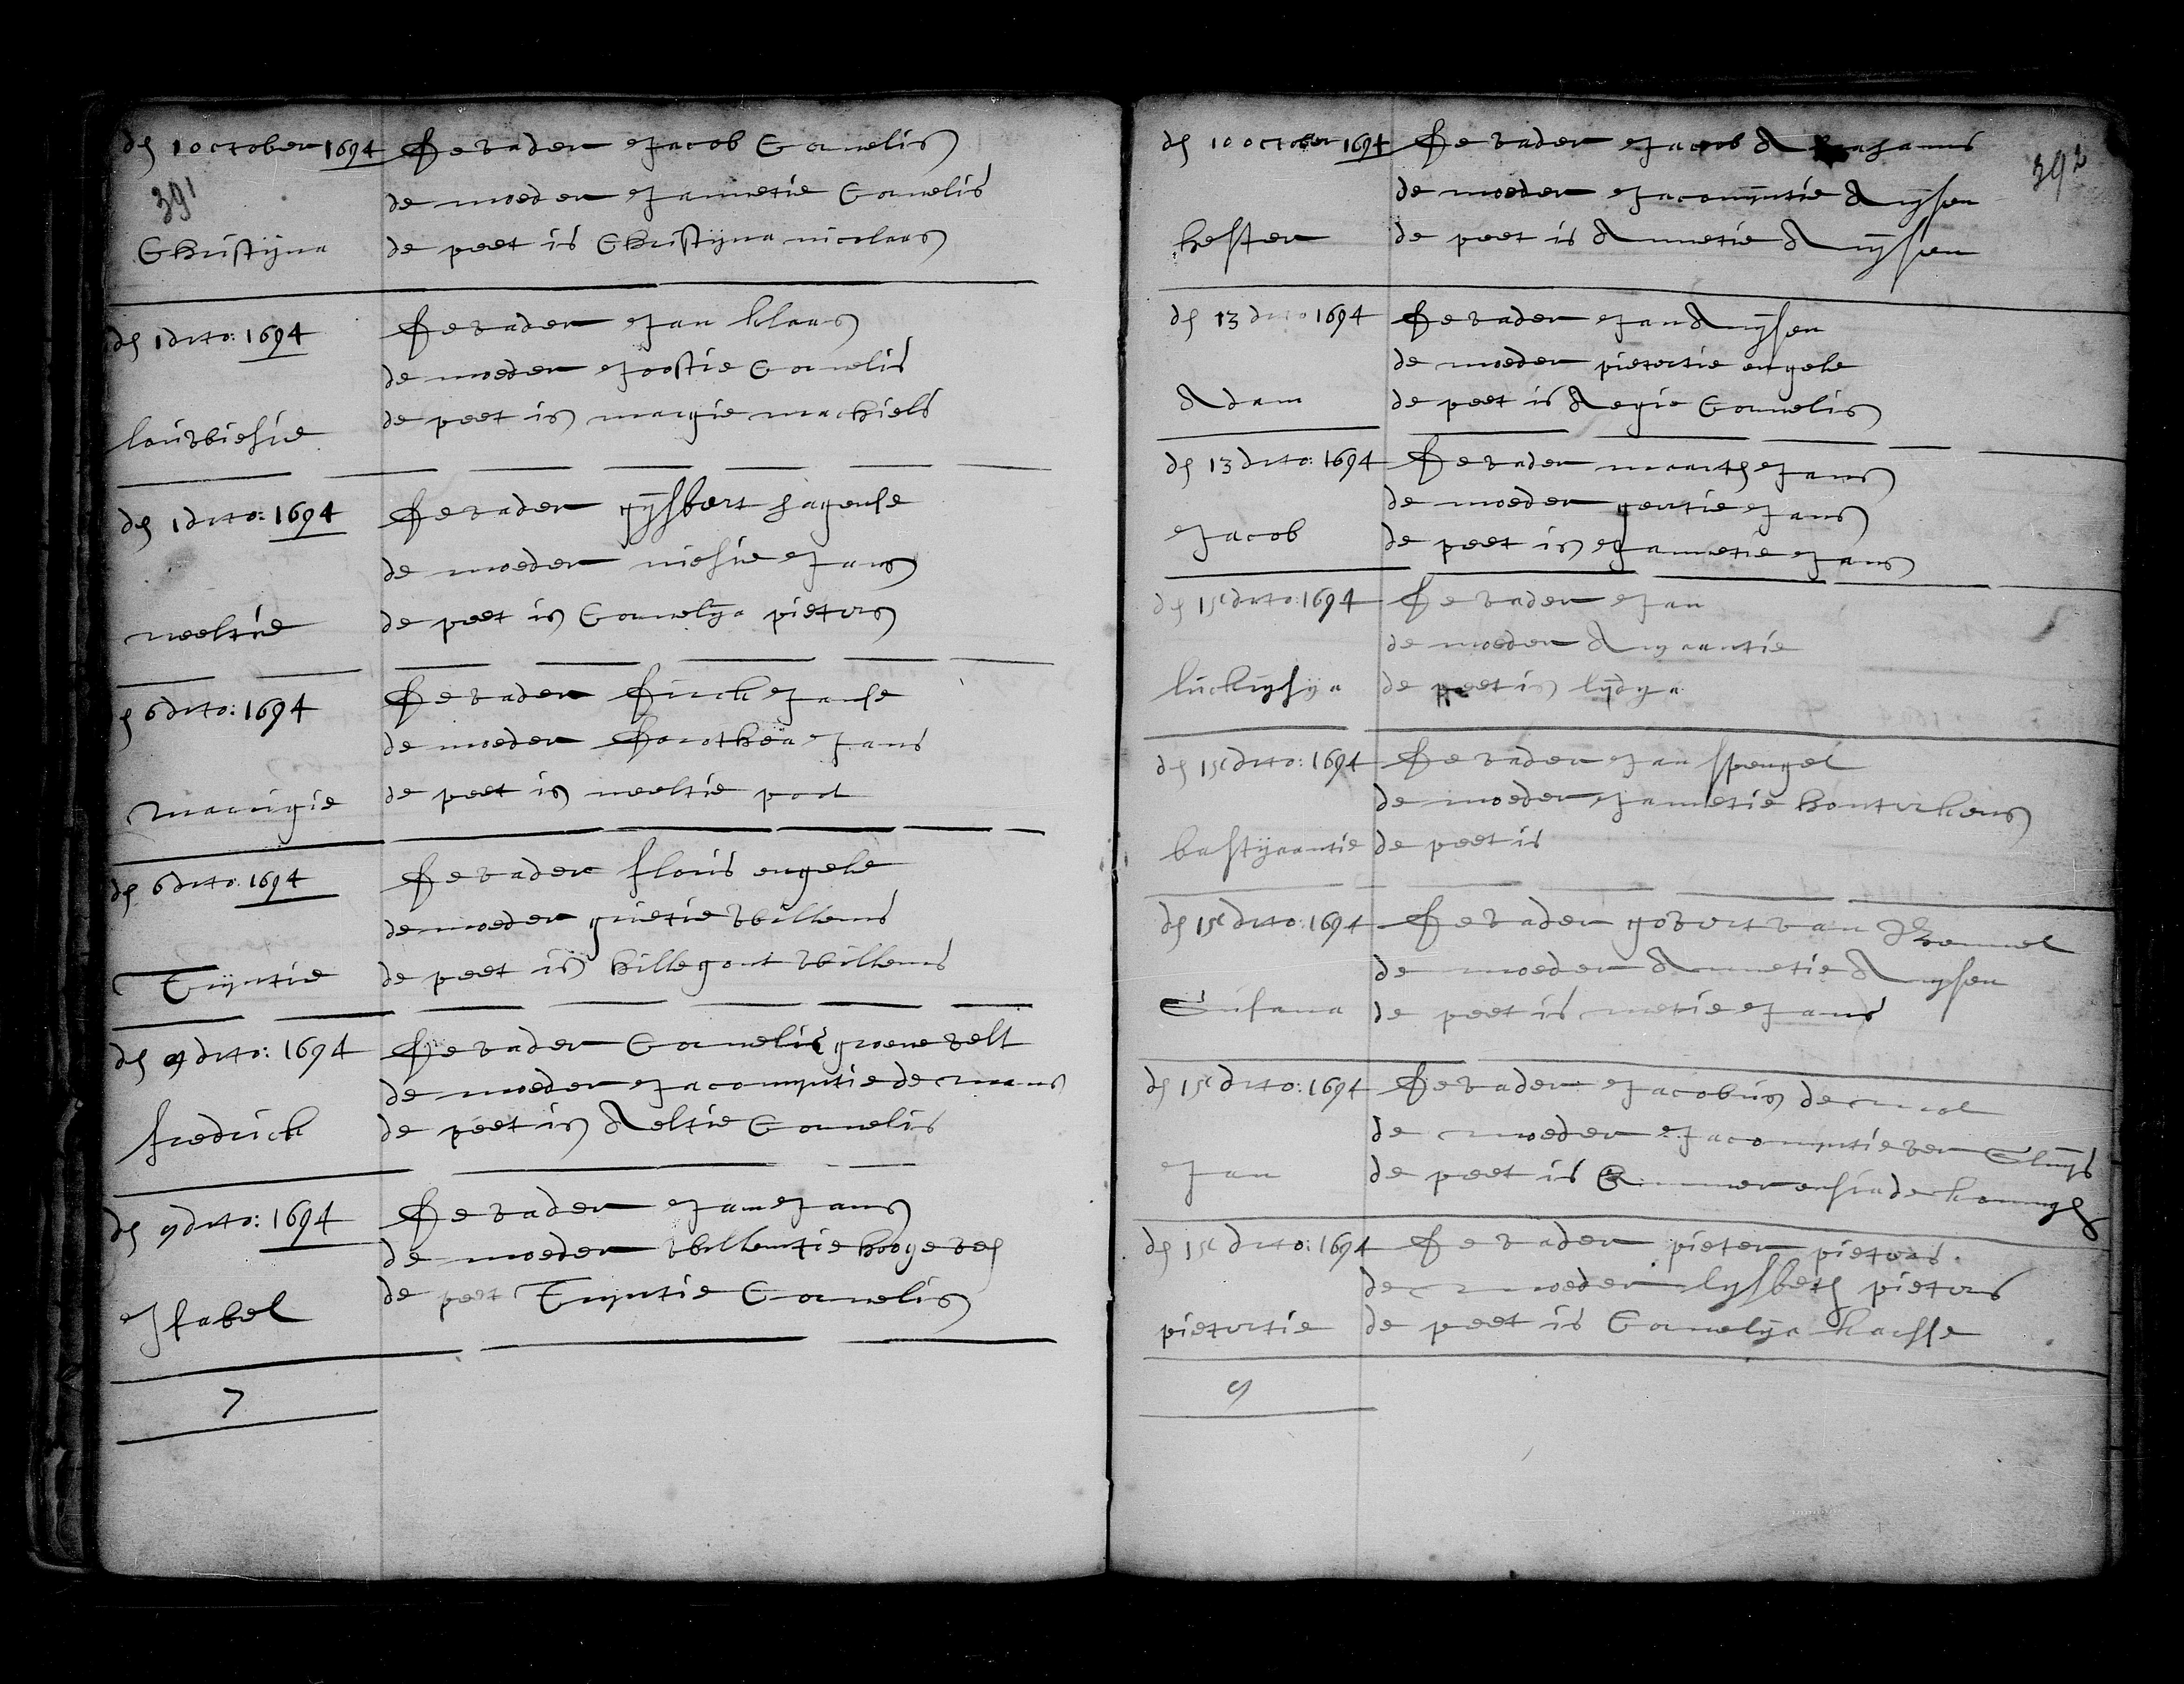 den 1 october 1694 De vader Jacob Cornelis
391
de moeder Jannetie Cornelis
Christijna de peet is Christijna nicolaas
den 1 dito: 1694 De vader Jan klaas
de moeder Joostie Cornelis
de peet is margie machiels
louwiesie
den 1 dito: 1694 De vader gijsbert hagense
de moeder niesie Jans
neeltie de peet is Cornelya pieters
den 6 dito: 1694 De vader Dirck Janse
de moeder Dorothea Jans
Marrigie de peet is neeltie pool
den 6 dito 1694 De vader floris engele
de moeder grietie willems
Trijntie de peet is hillegont willems
den 9 dito: 1694 De vader Cornelis groenevelt
de moeder Jacomyntie de mans
fredrick de peet is Aeltie Cornelis
den 9 dito: 1694 De vader Jan Jans
de moeder willemtie hoogeveen
de peet Trijntie Cornelis
Isabel
7
den 10 october 1694 De vader Jacob Abrahams
392
de moeder Jacomijntie Arijsen
hester de peet is Annetie Arijsen
den 13 dito 1694 De vader Jan Arijsen
de moeder pietertie engele
Adam de peet is Aegie Cornelis
den 13 dito: 1694 De vader maarten Jans
de moeder geertie Jans
Jacob de peet is Jannetie Jans
den 15 dito: 1694 De vader Jan
de moeder Aryaantie
luckrysya de peet is lijdya
den 15 dito: 1694 De vader Jan spengel
de moeder Jannetie
bastyaantie de peet is
den 15 dito: 1694 De vader govert van
de moeder Annetie Arysen
Susana de peet is metie Jans
den 15 dito: 1694 De vader Jacobus de mol
de moeder Jacomyntie ver Sluijs
Jan de peet is
den 15 dito: 1694 De vader pieter pieters
de moeder lysbeth pieters
pietertie de peet is Cornelya
9